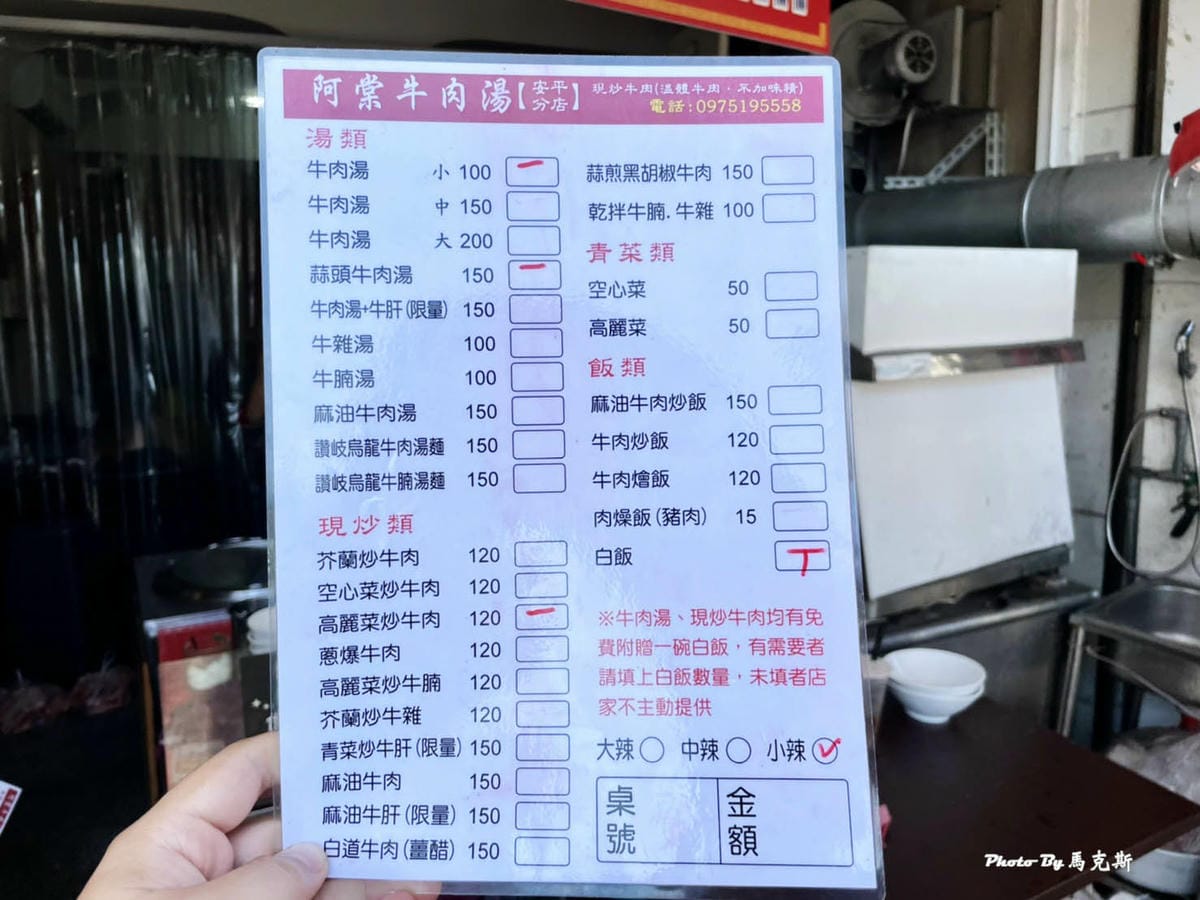 阿棠牛肉湯【安平分店】
現炒牛肉(溫體牛肉．不加味精)
電話:0975195558
湯類
牛肉湯 小 100
牛肉湯 中 150
牛肉湯 大 200
蒜頭牛肉湯 150
牛肉湯+牛肝(限量) 150
牛雜湯 100
牛腩湯 100
麻油牛肉湯 150
讚岐烏龍牛肉湯麵 150
讚岐烏龍牛腩湯麵 150
現炒類
芥蘭炒牛肉 120
空心菜炒牛肉 120
高麗菜炒牛肉 120
蔥爆牛肉 120
高麗菜炒牛腩 120
芥蘭炒牛雜 120
青菜炒牛肝(限量) 150
麻油牛肉 150
麻油牛肝(限量) 150
白道牛肉(薑醋) 150
蒜煎黑胡椒牛肉 150
乾拌牛腩.牛雜 100
青菜類
空心菜 50
高麗菜 50
飯類
麻油牛肉炒飯 150
牛肉炒飯 120
牛肉燴飯 120
肉燥飯(豬肉) 15
白飯
※牛肉湯、現炒牛肉均有免
費附贈一碗白飯，有需要者
請填上白飯數量，未填者店
家不主動提供
大辣 中辣 小辣
桌號 金額
Photo By 馬克斯